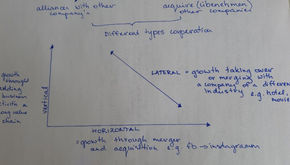 alliances with other
company's
acquire (übernehmen)
other companies
Different types cooperation
growth
through
adding
business
activities
along value
chain
vertical
LATERAL = growth taking over
or merging with
a company of a different
industry e.g. hotel,
movie
HORIZONTAL
= growth through merger
and acquisition e.g. fb → instagram